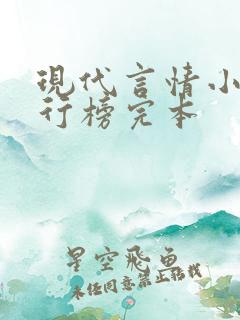 現代言情小
行榜完本
星空飛魚
未经同意禁止转载